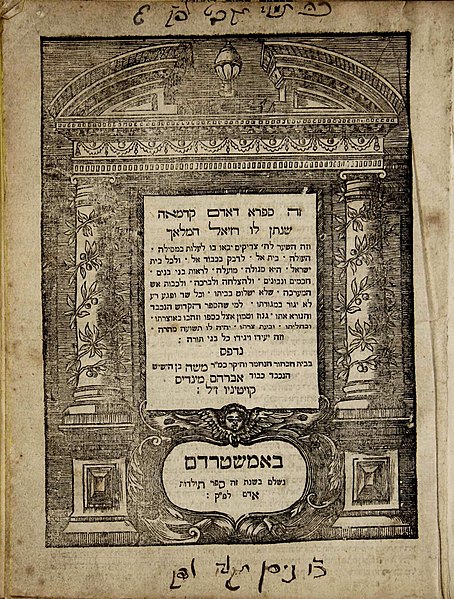 זה ספרא דאדם קדמאה
שנתן לו רזיאל המלאך
וזה השער לה׳ צדיקים יבאו בו לעלות במסילה ׳
העולה ׳ בית אל ׳ לדבק בכבוד אל ׳ ולכל בית
ישראל ׳ היא סגולה ׳ מועלה ׳ לראות בני בנים ׳
חכמים ונבונים ׳ ולהצלחה ולברכה ׳ ולכבות אש
המערכה ׳ שלא ישלוט בביתו ׳ וכל שד ופגע רע
לא יגור במגורתו ׳ למי שהספר הקדוש הנכבד
והנורא אתו ׳ גנוז וטמון אצל כספו וזהבו באוצרתו ׳
ובעת צרתו ׳ יהיה לו תשועה מהרה ׳
וזה יעידו ויגידו כל בני תורה :
נדפס
בבית הבחור הנחמד והיקר כמ״ר משה בן הישיש
הנכבד כבוד אברהם מינדיס
קויטיניו ז״ל :
באמשטרדם
נשלם בשנת זה ספר תולדות
אדם לפ״ק :